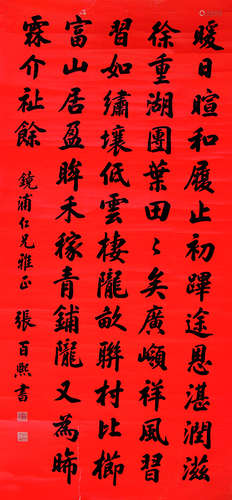 暖日暄和履止初蹕途恩湛潤滋
徐重湖團葉田〻矣廣祥風習
習如繡壤低雲棲隴畝聯村比櫛
富山居盈眸禾稼青鋪隴又為晞
霖介祉餘
鏡浦仁兄雅正 張百熙書